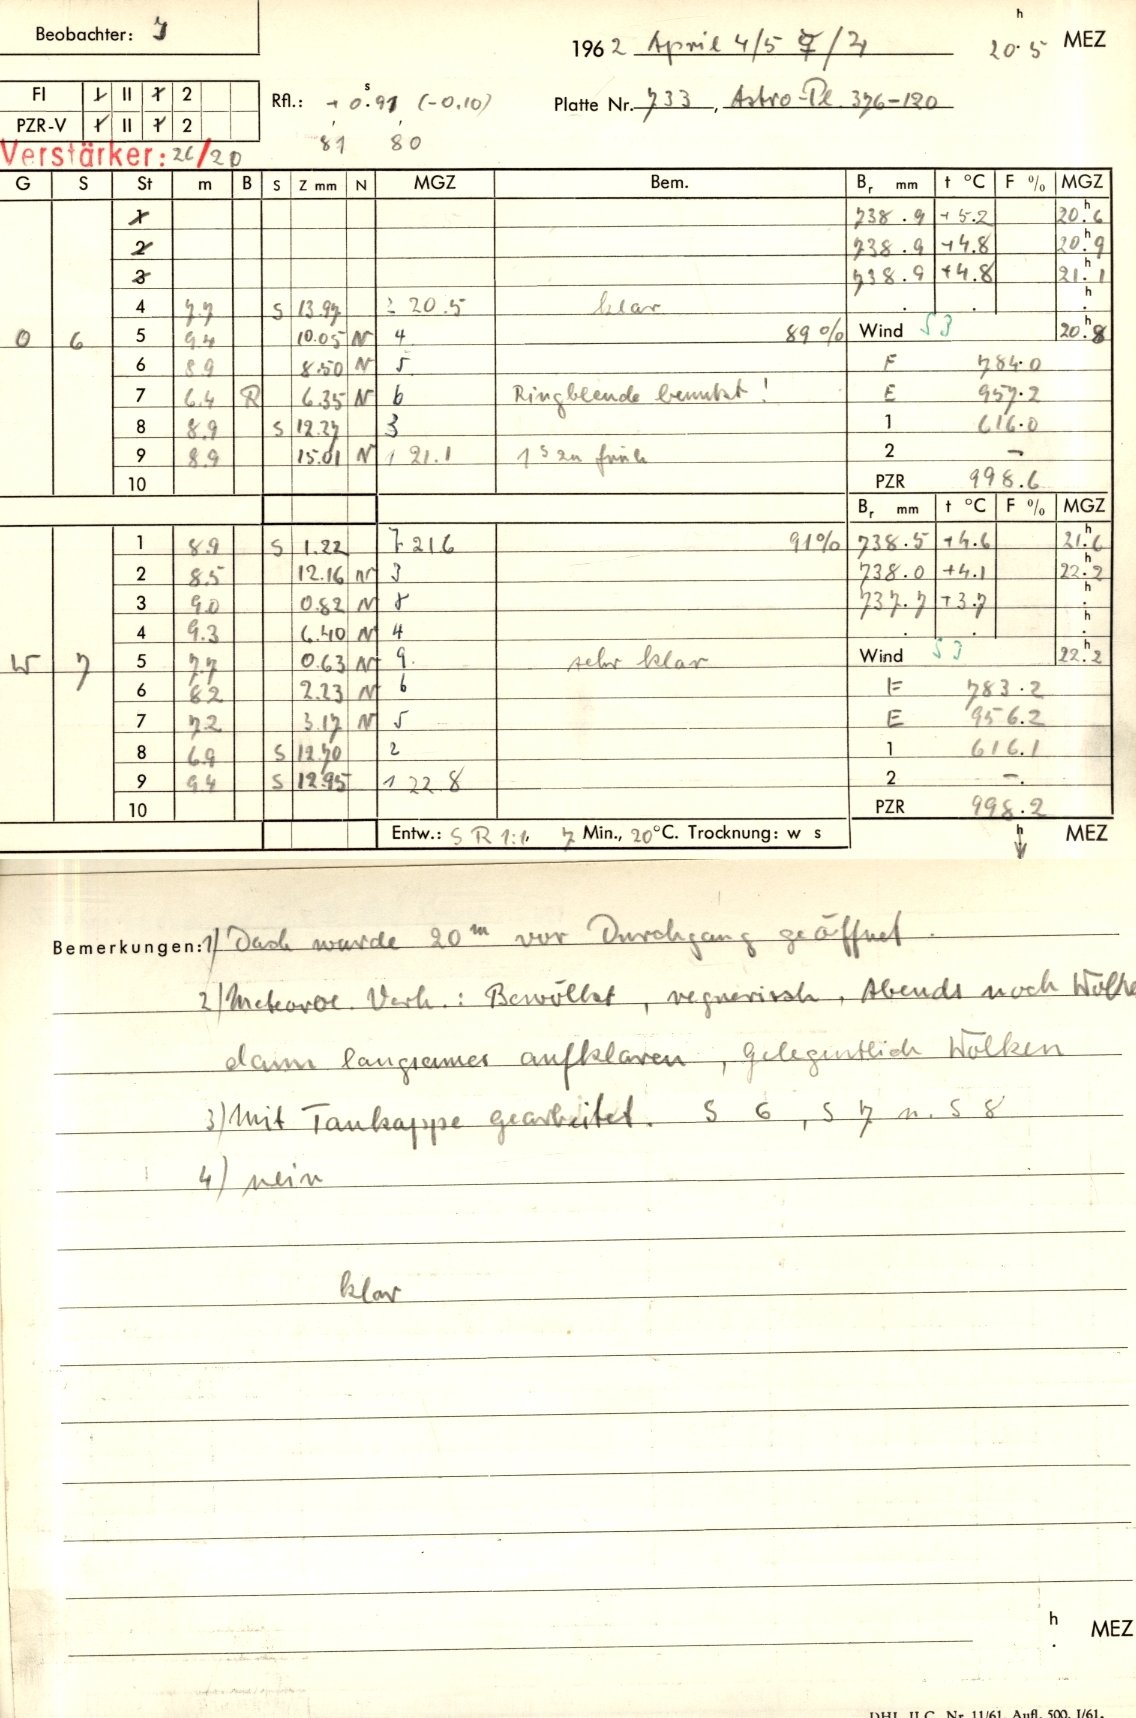 Beobachter: J
1962 April 4/5 ☿/♃ 20.5 h MEZ
FI 1 II 1 2
PZR-V 1 II 1 2
Rfl.: + 0.s91 (-0.10)
81 80
Platte Nr. 733, Astro-Pl. 376-120
Verstärker: 26/20
G S St m B S Z mm N MGZ Bem. Br mm t °C F % MGZ
1 738.9 +5.2 20.h6
2 738.9 +4.8 20.h9
3 738.9 +4.8 21.h1
4 7.7 S 13.97 2 20.5 klar . . h.
O 6 5 9.4 10.05 N 4 89% Wind S 3 20.h8
6 8.9 8.50 N 5 F 784.0
7 6.4 R 6.35 N 6 Ringblende benutzt! E 957.2
8 8.9 S 12.27 3 1 616.0
9 8.9 15.01 N 1 21.1 1s zu früh 2 -
10 PZR 998.6
Br mm t °C F % MGZ
1 8.9 S 1.22 7 21.6 91% 738.5 +4.6 21.h6
2 8.5 12.16 N 3 738.0 +4.1 22.h2
3 9.0 0.82 N 8 737.7 +3.7 h.
4 9.3 6.40 N 4 . . h.
W 7 5 7.7 0.63 N 9 sehr klar Wind S 3 22.h2
6 8.2 2.23 N 6 F 783.2
7 7.2 3.17 N 5 E 956.2
8 6.9 S 12.70 2 1 616.1
9 9.4 S 12.95 1 22.8 2 -.
10 PZR 998.2
Entw.: S R 1:1, 7 Min., 20°C. Trocknung: w s h MEZ
Bemerkungen: 1) Dach wurde 20m vor Durchgang geöffnet.
2) Meteorol. Verh.: Bewölkt, regnerisch, Abends noch Wolke
dann langsames aufklaren, gelegentlich Wolken
3) Mit Taukappe gearbeitet. S 6, S 7 u. S 8
4) nein
klar
h. MEZ
DHI. II C. Nr. 11/61. Aufl. 500. I/61.